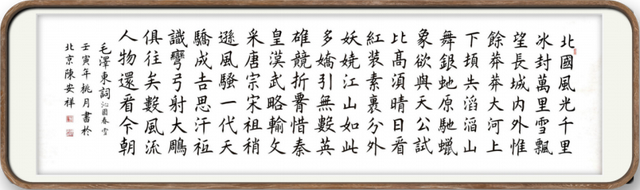 北國風光千里
冰封萬里雪飄
望長城內外惟
餘莽莽大河上
下頓失滔滔山
舞銀蛇原馳蠟
象欲與天公試
比高須晴日看
紅裝素裹分外
妖嬈江山如此
多嬌引無數英
雄競折腰惜秦
皇漢武略輸文
采唐宗宋祖稍
遜風騷一代天
驕成吉思汗祗
識彎弓射大鵰
俱往矣數風流
人物還看今朝
毛澤東詞 沁園春 雪
壬寅年桃月書於
北京陳安祥